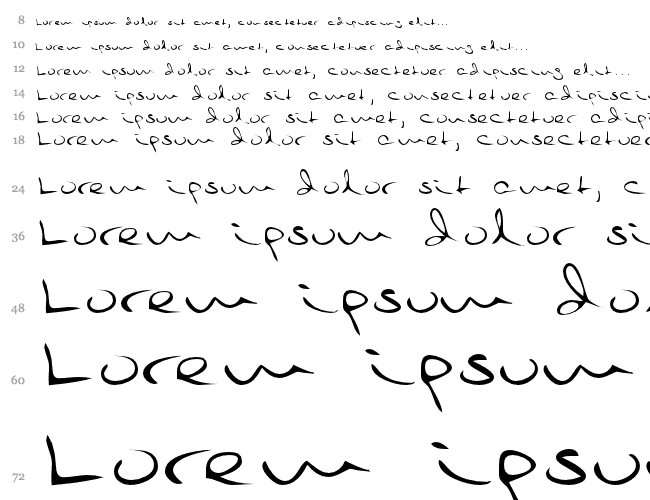 8 Lorem ipsum dolor sit amet, consectetuer adipiscing elit...
10 Lorem ipsum dolor sit amet, consectetuer adipiscing elit...
12 Lorem ipsum dolor sit amet, consectetuer adipiscing elit...
14 Lorem ipsum dolor sit amet, consectetuer adipisci
16 Lorem ipsum dolor sit amet, consectetuer adipi
18 Lorem ipsum dolor sit amet, consectetuer
24 Lorem ipsum dolor sit amet, c
36 Lorem ipsum dolor si
48 Lorem ipsum do
60 Lorem ipsum
72 Lorem ipsu